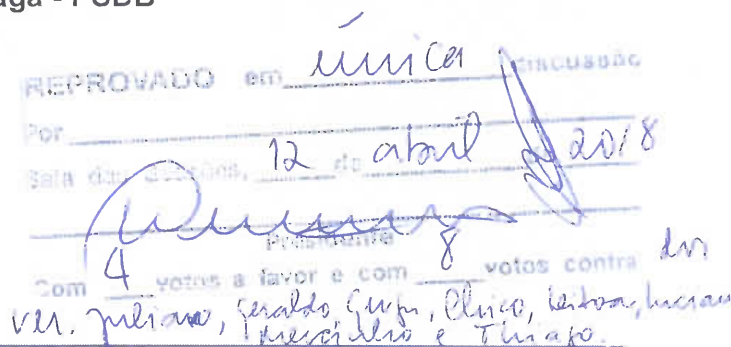 - PSDB
REPROVADO em única DISCUSSÃO
Por
Sala das Sessões, 12 de abril 2018
Presidente
Com 4 votos a favor e com 8 votos contra dos
ver. Juliano, Geraldo, Chico, Leitoa, Luciano
Mercinho e Thiago.